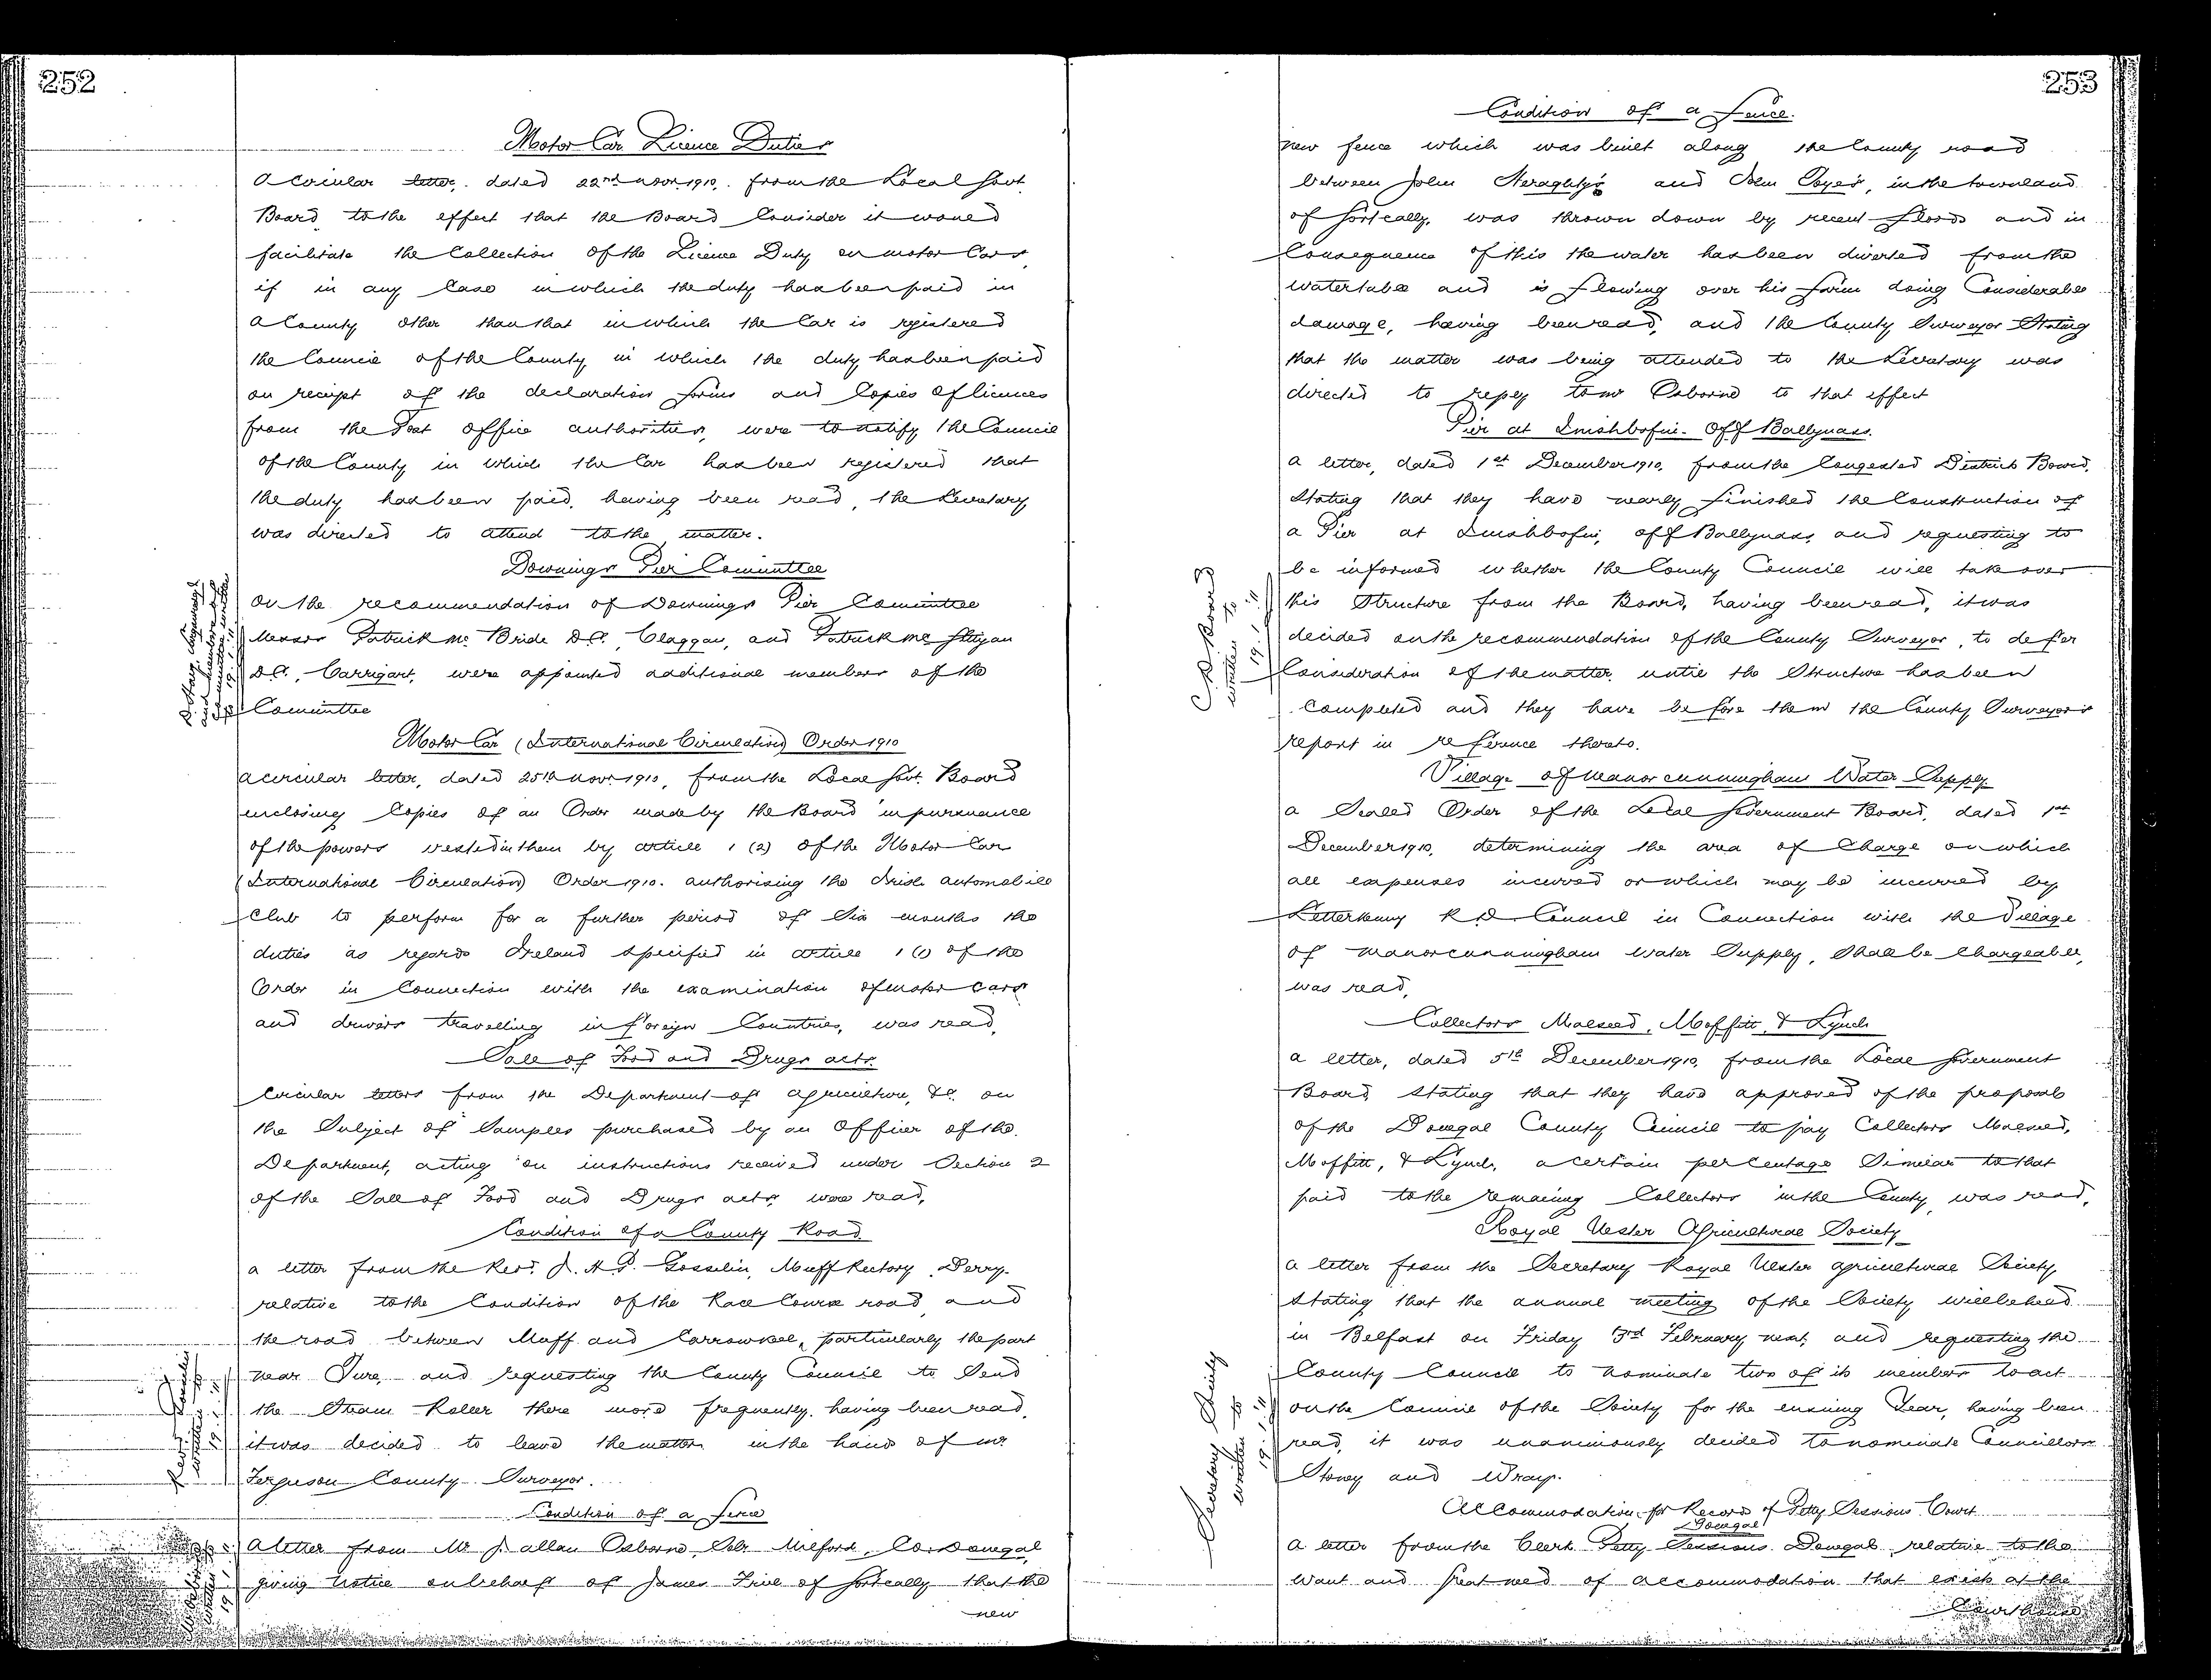 252
Motor Car Licence Duties
A circular letter, dated 22nd Novr. 1910, from the Local Govt.
Board, to the effect that the Board Consider it would
facilitate the Collection of the Licence Duty on motor Cars,
if in any Case in which the duty has been paid in
a County other than that in which the Car is registered
the Council of the County in which the duty has been paid
on receipt of the declaration forms and Copies of licences
from the Post Office authorities, were to notify the Council
of the County in which the Car has been registered that
the duty has been paid, having been read, the Secretary
was directed to attend to the matter.
Downings Pier Committee
On the recommendation of Downings Pier Committee
Messrs Patrick Mc Bride D.C. Claggan, and Patrick Mc
D.C., Carrigart, were appointed additional members of the
Committee
Motor Car (International Circulation) Order 1910
A circular letter, dated 25th Novr. 1910, from the Local Govt. Board
enclosing Copies of an Order made by the Board in pursuance
of the powers vested in them by Article 1 (2) of the Motor Car
(International Circulation) Order 1910. authorising the Irish Automobile
Club to perform for a further period of Six months the
duties as regards Ireland specified in Article 1 (1) of the
Order in Connection with the examination of motor Cars
and drivers travelling in foreign Countries, was read,
Sale of Food and Drugs Acts.
Circular letters from the Department of Agriculture, &c. on
the Subject of Samples purchased by an Officer of the
Department, acting on instructions received under Section 2
of the Sale of Food and Drugs Acts, were read,
Condition of a County Road
A letter from the Revd. J. H. P. Gosselin, Muff Rectory, Derry.
relative to the Condition of the Race Course road, and
the road between Muff and Carrowkeel, particularly the part
near Ture, and requesting the County Council to Send
the Steam Roller there more frequently, having been read,
it was decided to leave the matter in the hands of Mr
Ferguson County Surveyor.
Condition of a Fence
A letter from Mr J. Allan Osborne, Solr. Milford, Co. Donegal,
giving notice on behalf of James Friel of Gortcally that the
new
253
Condition of a Fence.
new fence which was built along the County road
between John Heraghty's and John Coyes, in the townland
of Gortcally, was thrown down by recent floods and in
Consequence of this the water has been diverted from the
watertable and is flowing over his farm doing Considerable
damage, having been read, and the County Surveyor Stating
that the matter was being attended to the Secretary was
directed to reply to Mr Osborne to that effect
Pier at Inishbofin - Off Ballyness.
A letter, dated 1st December 1910, from the Congested Districts Board,
Stating that they have nearly finished the Construction of
a Pier at Inishbofin, off Ballyness, and requesting to
be informed whether the County Council will take over
this Structure from the Board, having been read, it was
decided on the recommendation of the County Surveyor, to defer
Consideration of the matter until the Structure has been
Completed and they have before them the County Surveyor's
report in reference thereto.
C. D. Board
written to
Village of Manorcunningham Water Supply
A Sealed Order of the Local Government Board, dated 1st
December 1910, determining the area of Charge on which
all expenses incurred or which may be incurred by
Letterkenny R D Council in Connection with the Village
of Manorcunningham Water Supply, Shall be Chargeable,
was read,
Collectors Malseed, Moffitt, & Lynch
A letter, dated 5th December 1910, from the Local Government
Board Stating that they have approved of the proposals
of the Donegal County Council to pay Collectors Malseed,
Moffitt, & Lynch, a certain percentage Similar to that
paid to the remaining Collectors in the County, was read,
Royal Ulster Agricultural Society
A letter from the Secretary Royal Ulster Agricultural Society,
Stating that the annual meeting of the Society will be held
in Belfast on Friday 3rd February next, and requesting the
County Council to nominate two of its members to act
on the Council of the Society for the ensuing Year, having been
read, it was unanimously decided to nominate Councillors
Stoney and Wray.
Secretary Society
written to
Accommodation for Records of Petty Sessions Court
Donegal
A letter from the Clerk Petty Sessions Donegal, relative to the
want and great need of accommodation that exists at the
Courthouse